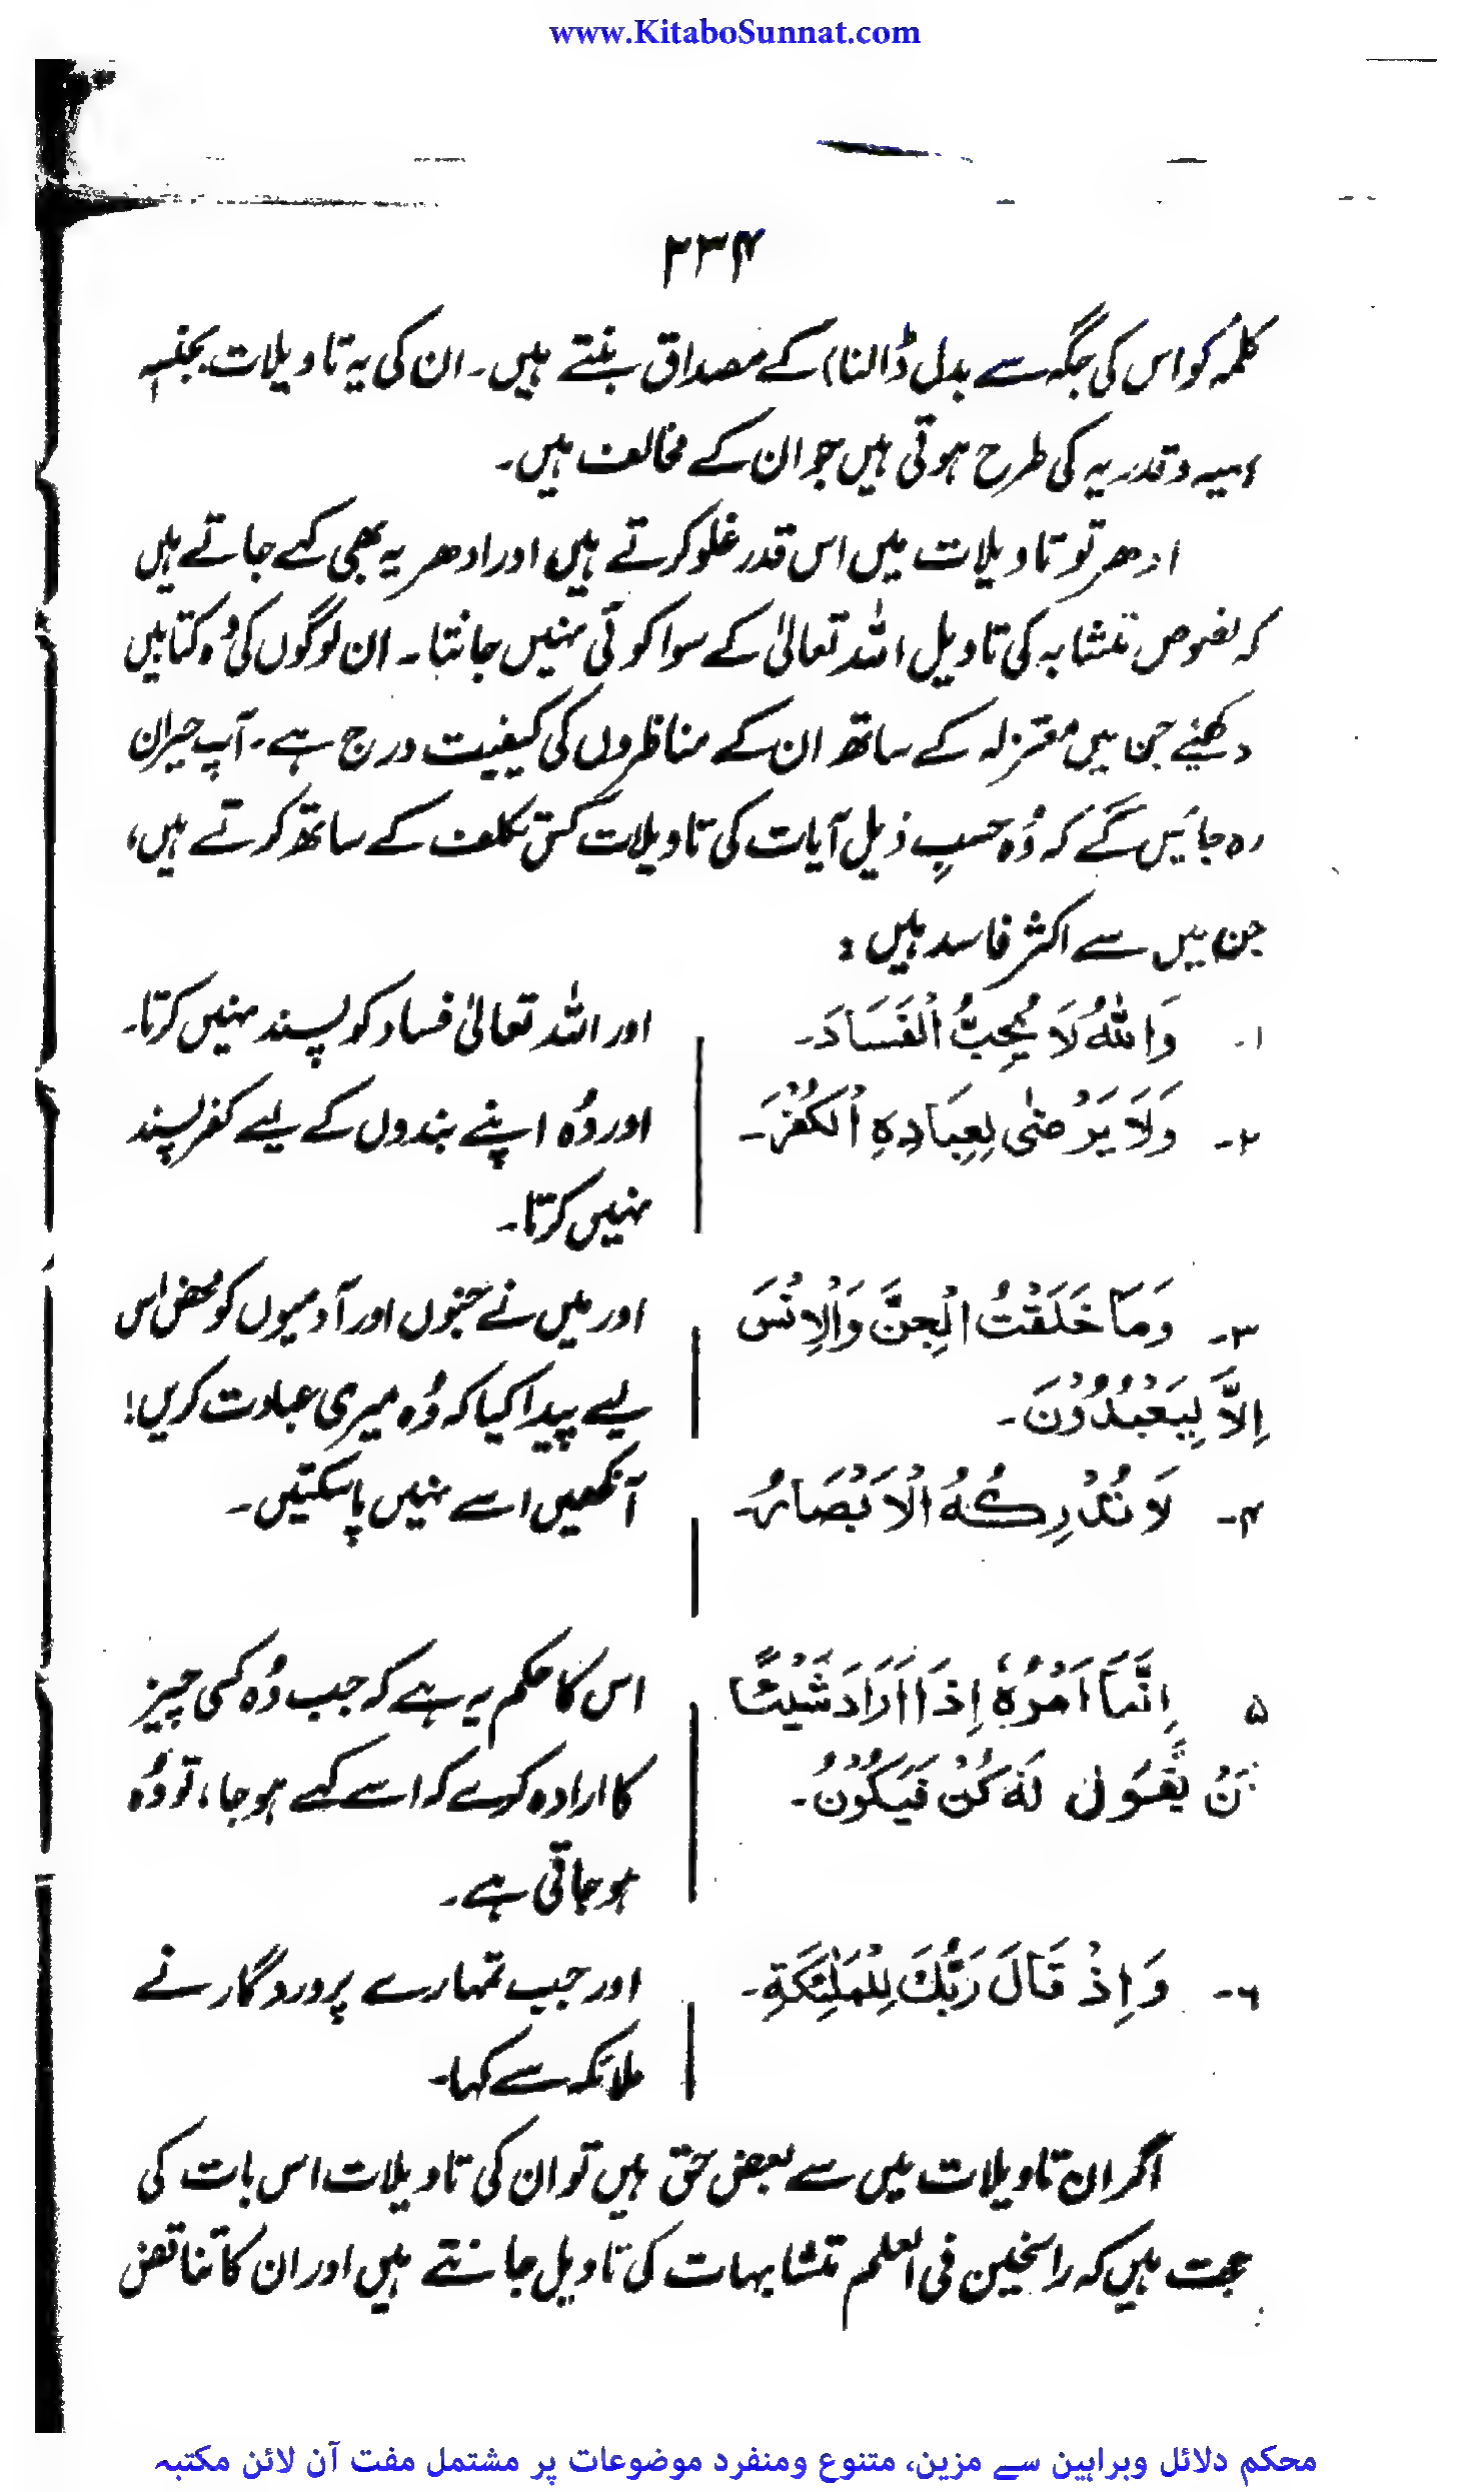 www.KitaboSunnat.com
۲۳۴
کلمہ کو اس کی جگہ سے بدل ڈالنا) کے مصداق بنتے ہیں۔ ان کی یہ تاویلات بجنسہٖ
وقدریہ کی طرح ہوتی ہیں جو ان کے مخالف ہیں۔
ادھر تو تاویلات میں اس قدر غلو کرتے ہیں اور ادھر یہ بھی کہے جاتے ہیں
کہ نصوص متشابہ کی تاویل اللہ تعالیٰ کے سوا کوئی نہیں جانتا۔ ان لوگوں کی وُہ کتابیں
دیکھئے جن میں معتزلہ کے ساتھ ان کے مناظروں کی کیفیت درج ہے۔ آپ حیران
رہ جائیں گے کہ وُہ حسبِ ذیل آیات کی تاویلات کس تکلف کے ساتھ کرتے ہیں،
جن میں سے اکثر فاسد ہیں :
۱۔ وَاللّٰهُ لَا يُحِبُّ الْفَسَادَ۔ اور اللہ تعالیٰ فساد کو پسند نہیں کرتا۔
۲۔ وَلَا يَرْضٰى لِعِبَادِهِ الْكُفْرَ۔ اور وُہ اپنے بندوں کے لیے کفر پسند
نہیں کرتا۔
۳۔ وَمَا خَلَقْتُ الْجِنَّ وَالْاِنْسَ اور میں نے جنوں اور آدمیوں کو محض اس
اِلَّا لِيَعْبُدُوْنَ۔ لیے پیدا کیا کہ وُہ میری عبادت کریں!
۴۔ لَا تُدْرِكُهُ الْاَبْصَارُ۔ آنکھیں اسے نہیں پا سکتیں۔
۵ اِنَّمَا اَمْرُهٗ اِذَا اَرَادَ شَيْئًا اس کا حکم یہ ہے کہ جب وُہ کسی چیز
نْ يَّقُوْلَ لَهٗ كُنْ فَيَكُوْنُ۔ کا ارادہ کرے کہ اسے کہے ہو جا، تو وُہ
ہو جاتی ہے۔
۶۔ وَاِذْ قَالَ رَبُّكَ لِلْمَلٰٓئِكَةِ۔ اور جب تمہارے پروردگار نے
ملائکہ سے کہا۔
اگر ان تاویلات میں سے بعض حق ہیں تو ان کی تاویلات اس بات کی
حجت ہیں کہ راسخین فی العلم متشابہات کی تاویل جانتے ہیں اور ان کا تناقض
محکم دلائل وبراہین سے مزین، متنوع ومنفرد موضوعات پر مشتمل مفت آن لائن مکتبہ